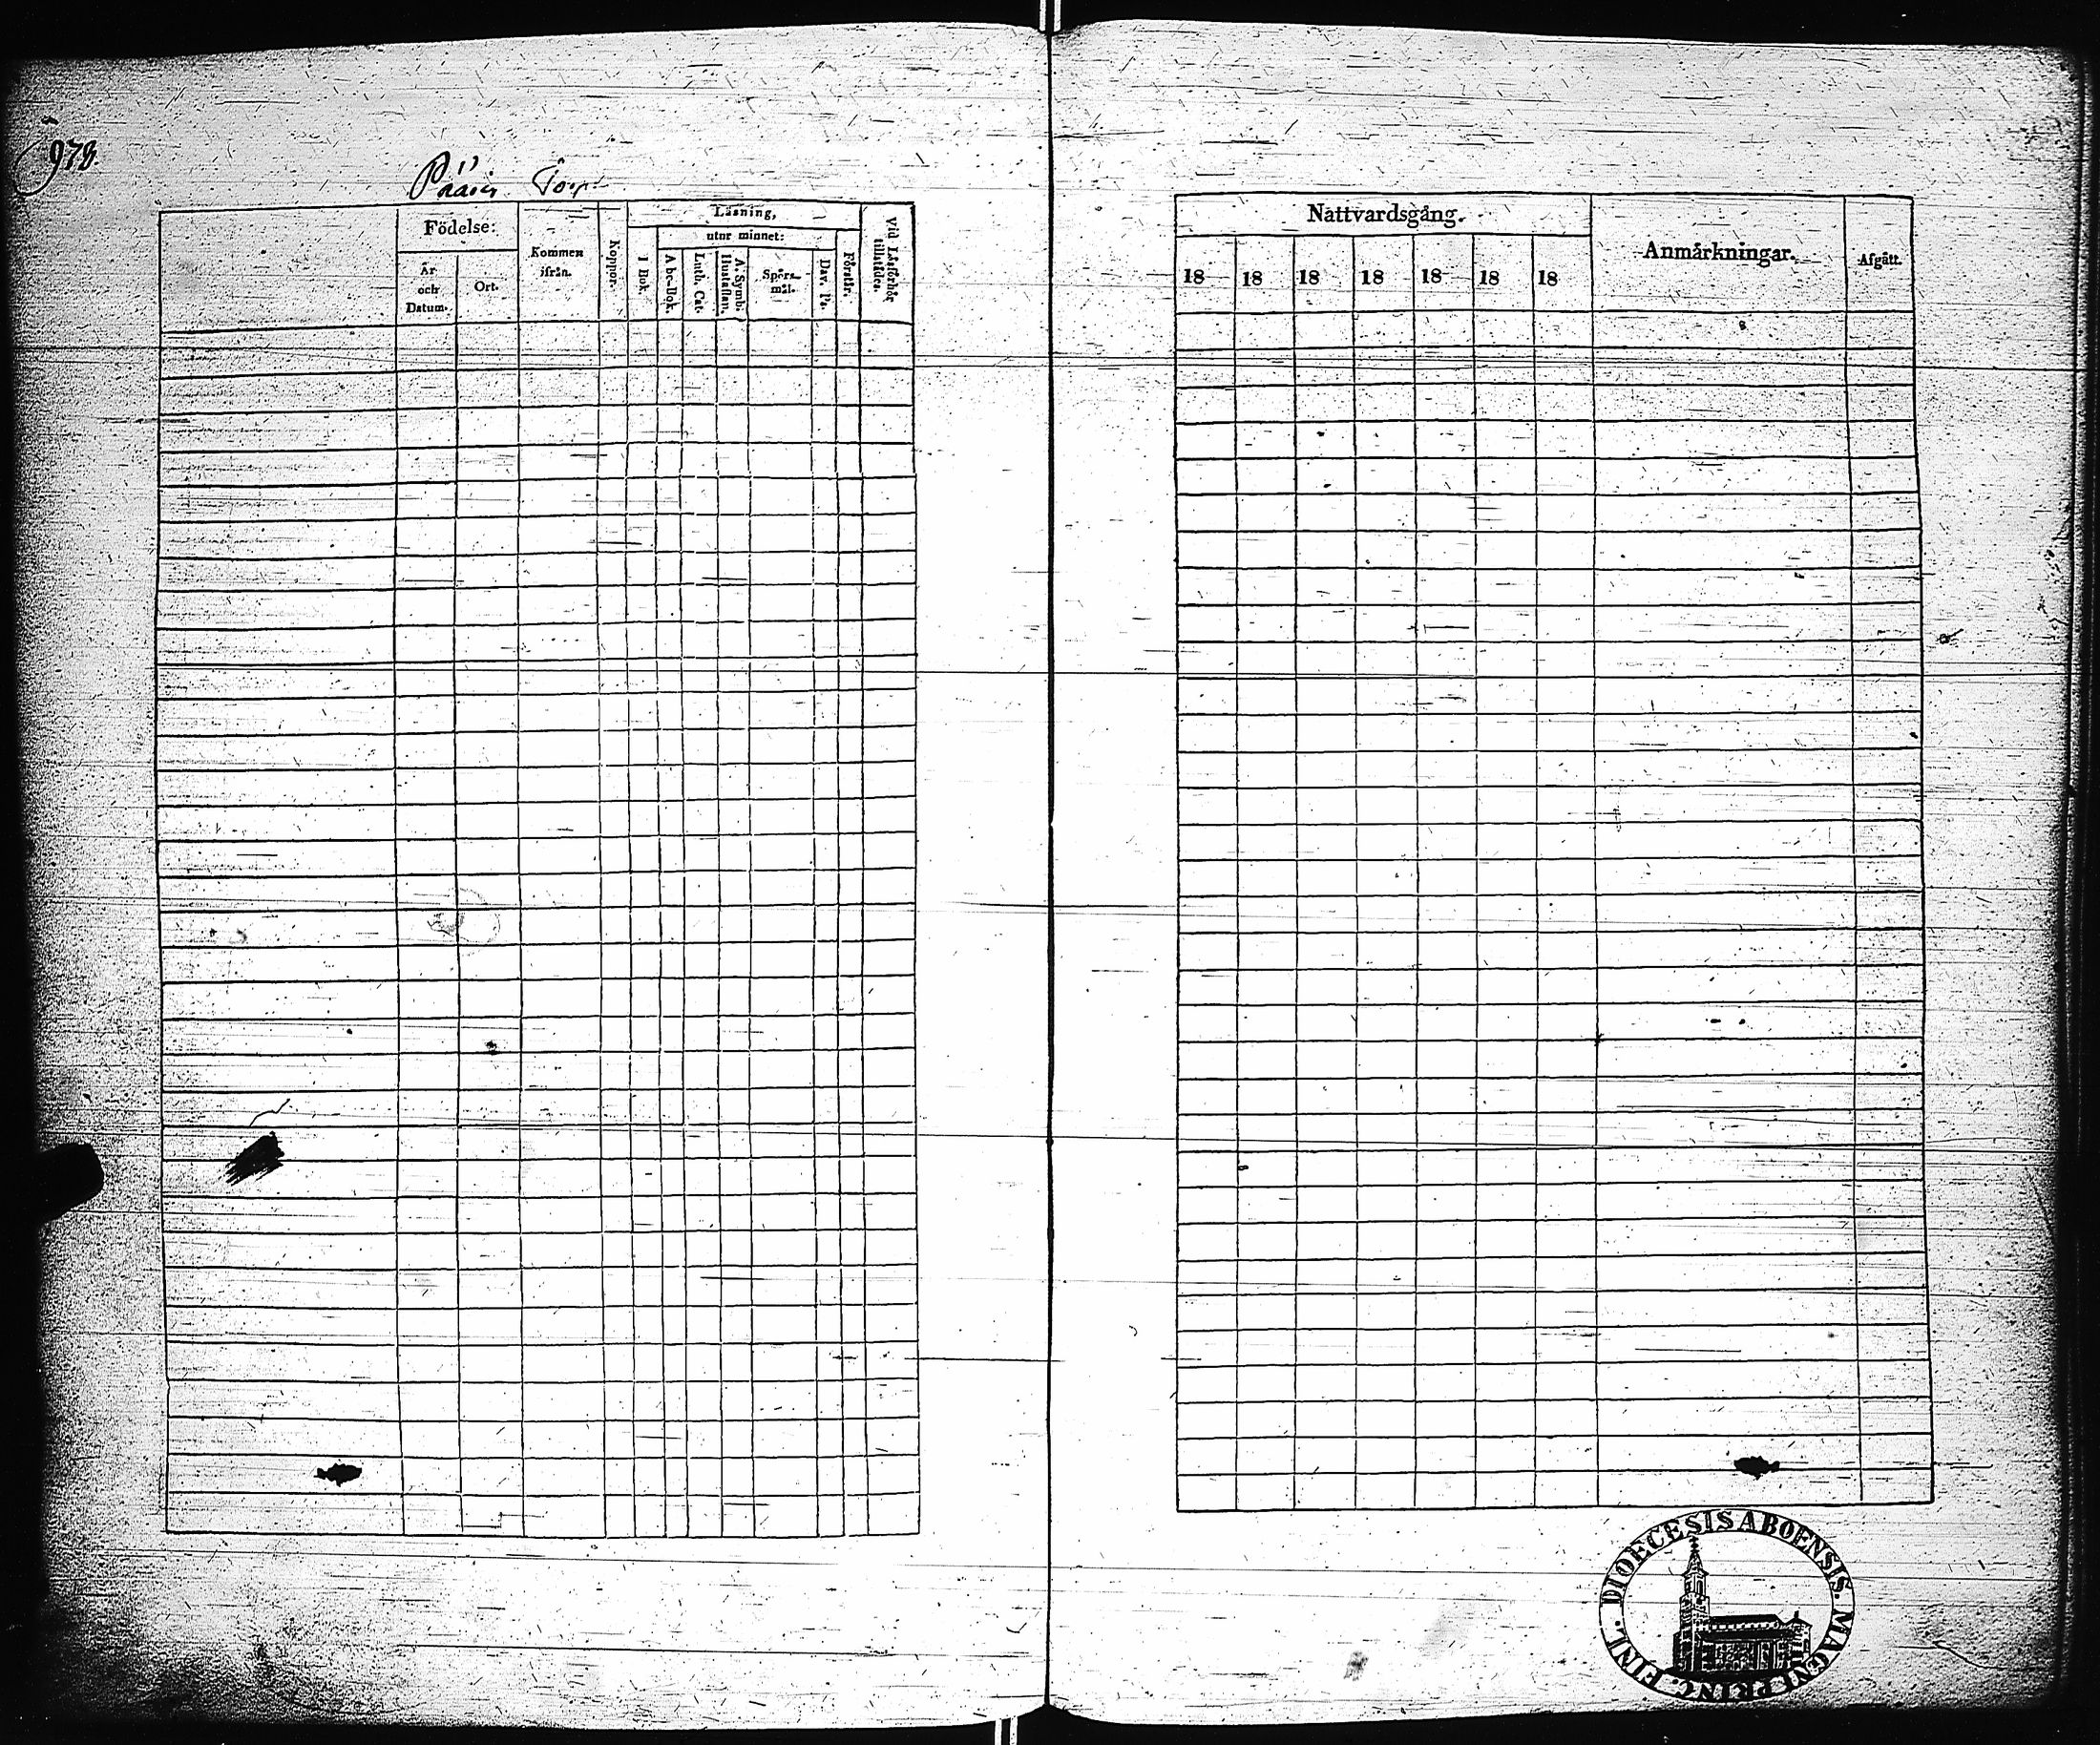 978.
Födelse:
År
och
Datum.
Ort.
Kommen
ifrån.
Koppor.
Läsning,
utur minnet:
I Bok.
A be-Bok.
Luth. Cat.
A. Symb.
Hustaflan.
Spörs-
mål.
Dav. Ps.
Förstår.
Vid Läsförhör
tillstädes.
Nattvardsgång.
18 18 18 18 18 18 18
Anmärkningar.
Afgått.
DIOECESIS ABOENSIS. MAGNI PRINC. FINL.